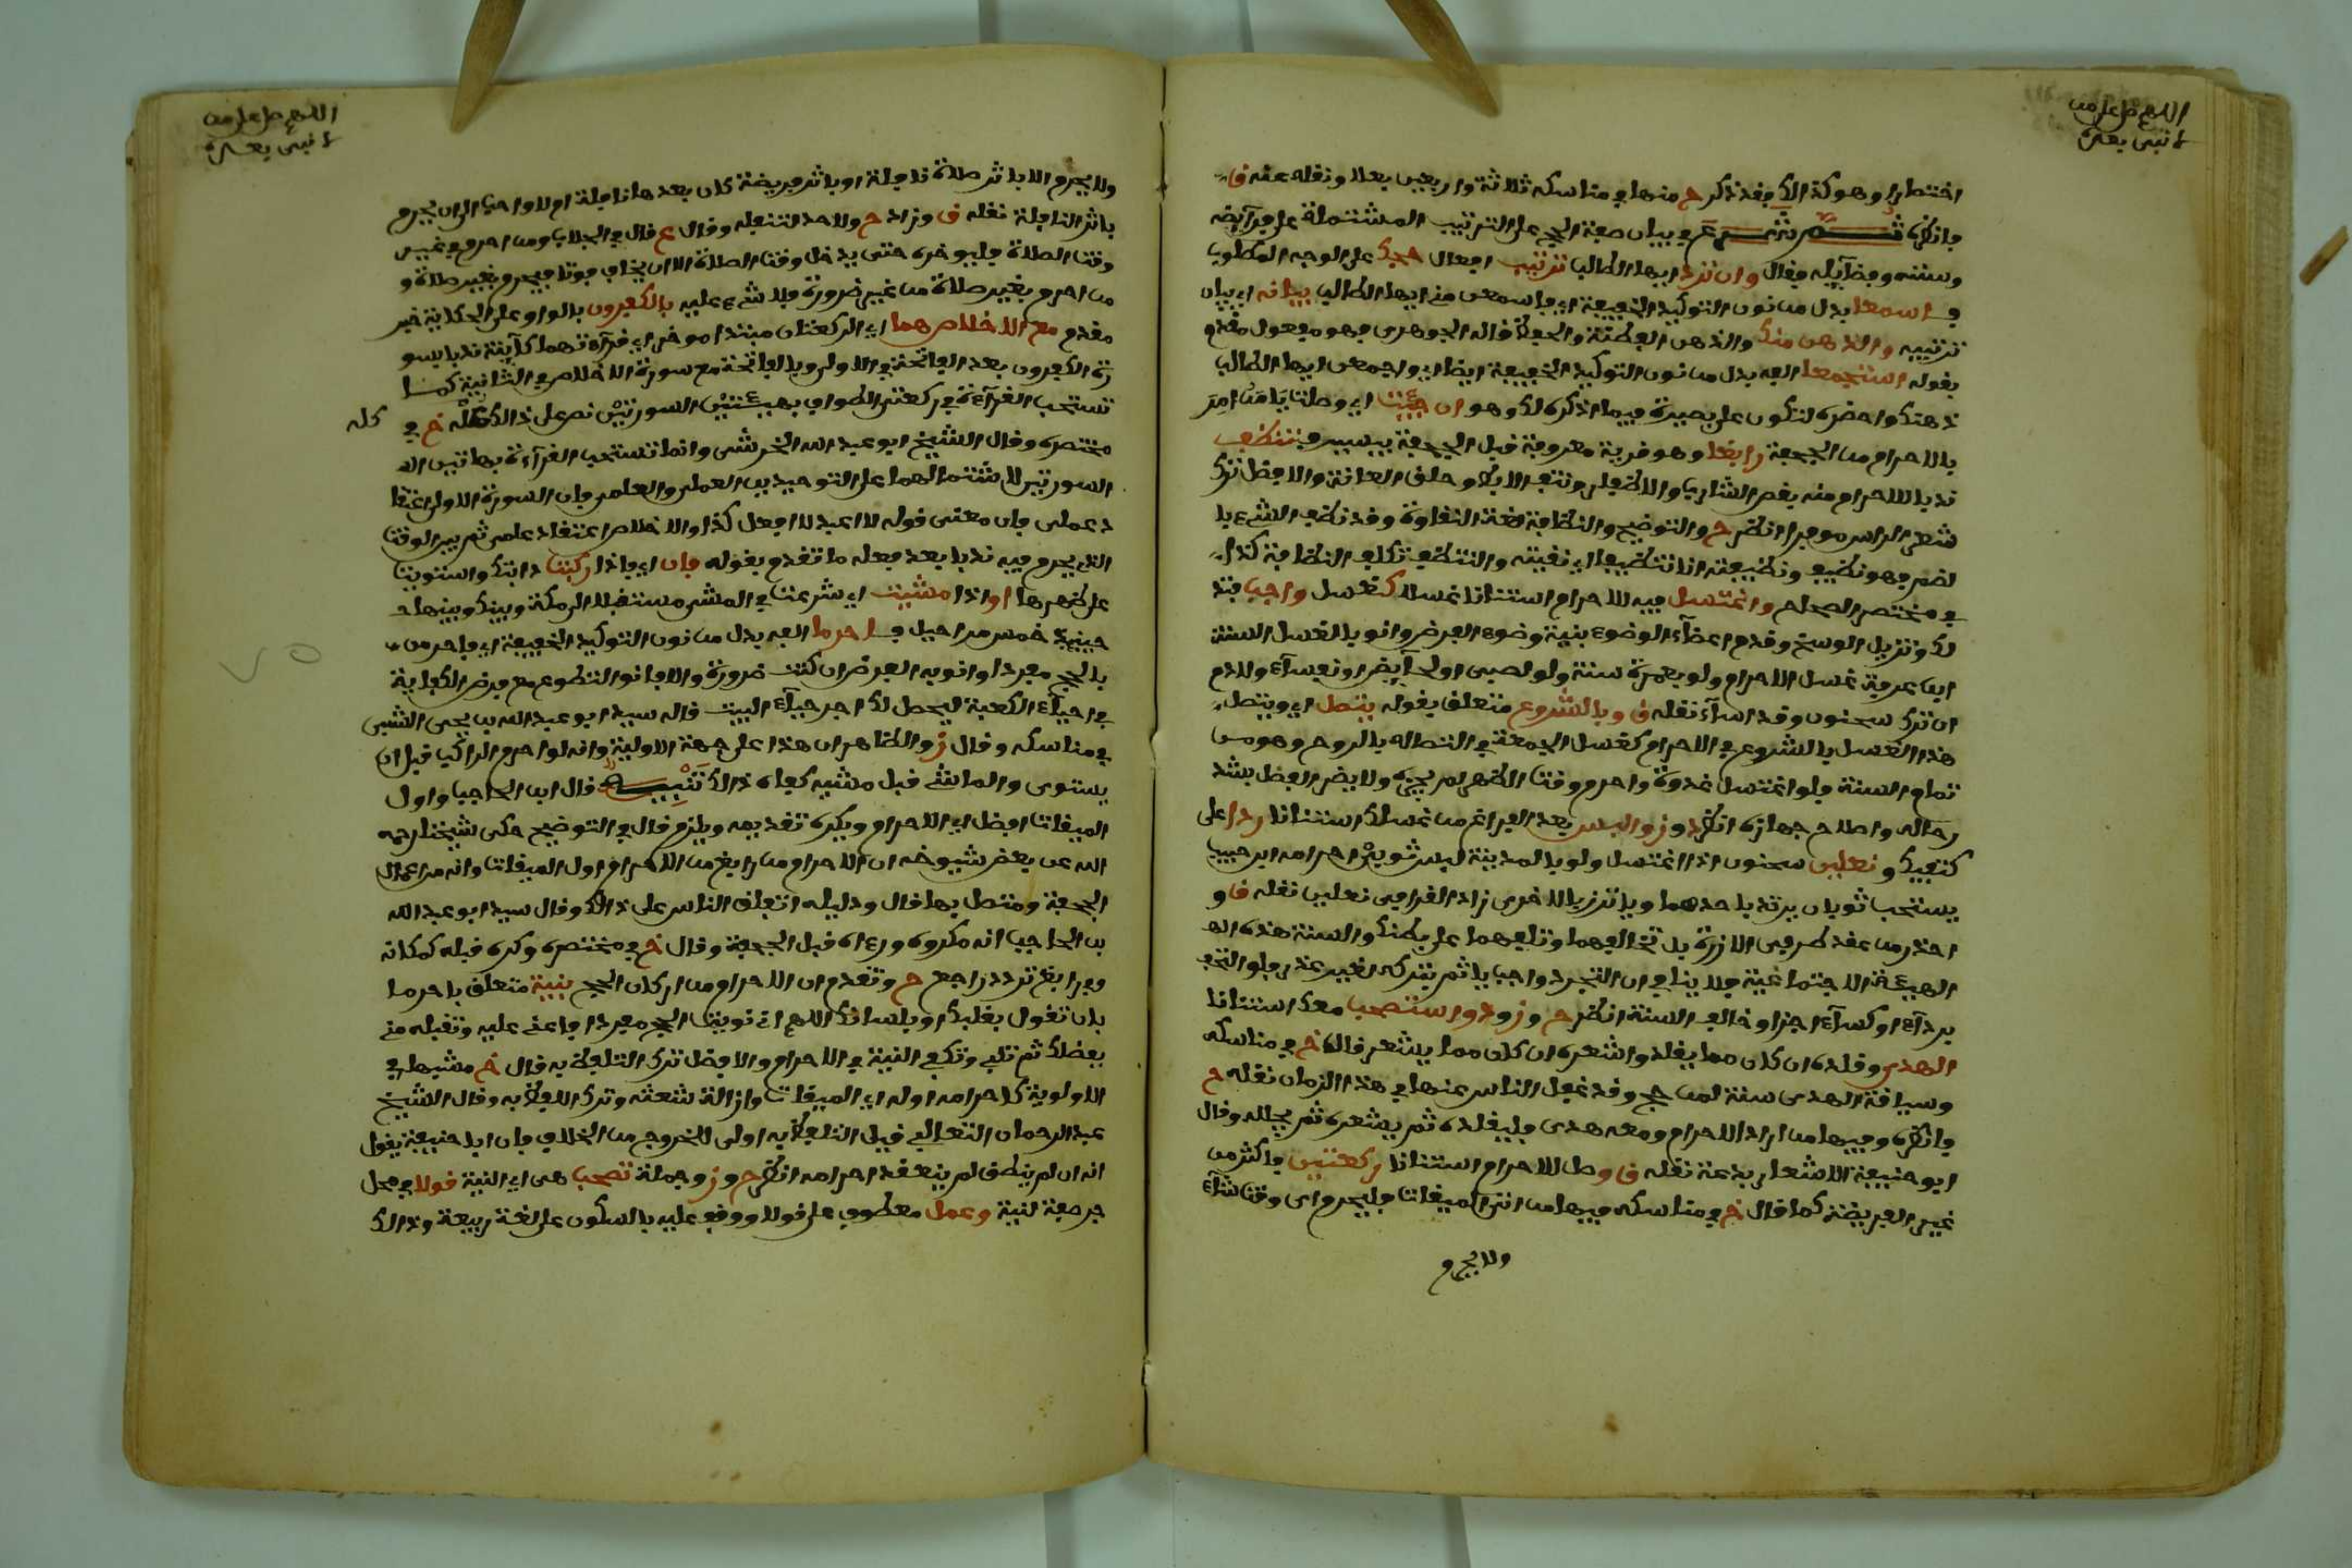 اللهم صل على من
لا نبي بعده
اختصارا وهو كذلك فقد ذكر ح منها في مناسكه ثلاثة واربعين فعلا ونقله عنه ق
فانظره ثم شرع في بيان صفة الحج على الترتيب المشتملة على فرآيضه
وسننه وفضآيله فقال وان ترد ايها الطالب ترتيب افعال حجك على الوجه المطلوب
فاسمعا بدل من نون التوكيد الخفيفة اي فاسمعن مني ايها الطالب بيانه اي بيان
ترتيبه والذهن منك والذهن الفطنة والحفظ قاله الجوهري وهو مفعول مقدم
بقوله استجمعا الفه بدل من نون التوكيد الخفيفة ايضا اي واجمعن ايها الطالب
ذهنك واحضره لتكون على بصيرة فيما اذكره لك وهو ان جئت اي وصلت يا من امر
بالاحرام من الجحفة رابغا وهو قرية معروفة قبل الجحفة بيسير تنظف
ندبا للاحرام منه بقص الشارب والاظفار ونتف الابط وحلق العانة والافضل ترك
شعر الراس موفرا انظر ح والتوضيح والنظافة لغة النقاوة وقد نظف الشيء با
لضم فهو نظيف ونظفته انا تنظيفا اي نقيته والتنظف تكلف النظافة كذا
في مختصر الصحاح واغتسل فيه للاحرام استنانا غسلا كغسل واجب فتد
لك وتزيل الوسخ وقدم اعضآء الوضوء بنية وضوء الفرض وانو بالغسل السنة
ابن عرفة غسل الاحرام ولو بعمرة سنة ولو لصبي او لحآيض او نفسآء ولا دم
ان ترك سحنون وقد اسآء نقله ق وبالشروع متعلق بقوله يتصل اي ويتصل
هذا الغسل بالشروع في الاحرام كغسل الجمعة في اتصاله بالروح وهو من
تمام السنة فلو اغتسل غدوة واحرم وقت الظهر لم يجزه ولا يضر الفصل بشد
رحاله واصلاح جهازه انظر د وز والبس بعد الفراغ من غسلك استنانا ردا على
كتفيك ونعلين سحنون اذا اغتسل ولو بالمدينة لبس ثوبي احرامه ابن حبيب
يستحب ثوبان يرتدي باحدهما وياتزر بالاخرى زاد القرافي نعلين نقله ق و
احذر من عقد طرفي الازرة بل تخالفهما وتلفهما على بطنك والسنة هذه الـ
الهيئة الاجتماعية فلا ينافي ان التجرد واجب ياثم بتركه لغير عذر فلو التحف
بردآء او كسآء اجزا وخالف السنة انظر ح وز ود واستصحب معك استنانا
الهدي وقلده ان كان مما يقلد واشعره ان كان مما يشعر قال خ في مناسكه
وسياقة الهدي سنة لمن حج وقد غفل الناس عنها في هذا الزمان نقله ح
فانظره وفيها من اراد الاحرام ومعه هدي فليقلده ثم يشعره ثم يجلله وقال
ابو حنيفة الاشعار بدعة نقله ق وصل للاحرام استنانا ركعتين فاكثر من
غير الفريضة كما قال خ في مناسكه فيها من اتى الميقات فليحرم اي وقت شآء
ولا يحرم
اللهم صل على من
لا نبي بعده
ولا يحرم الا باثر صلاة نافلة او باثر فريضة كان بعدها نافلة ام لا واحب الي ان يحرم
باثر النافلة نقله ق وزاد ح ولا حد لتنفله وقال ع قال في الجلاب ومن احرم في غير
وقت الصلاة فليوخره حتى يدخل وقت الصلاة الا ان يخاف فوتا فيحرم بغير صلاة و
من احرم بغير صلاة من غير ضرورة فلا شيء عليه بالكفرون بالواو على الحكاية خبر
مقدم مع الاخلاص هما اي الركعتان مبتدا موخر اي قرآءتهما كآينة ندبا بسو
رة الكفرون بعد الفاتحة في الاولى وبالفاتحة مع سورة الاخلاص في الثانية كما
تستحب القرآءة في ركعتي الطواف بهاتين السورتين نص على ذالك كله خ في
كله
مختصره وقال الشيخ ابو عبد الله الخرشي وانما تستحب القرآءة بهاتين الـ
السورتين لاشتمالهما على التوحيدين العملي والعلمي فان السورة الاولى اعتقا
د عملي فان معنى قوله لا اعبد لا افعل كذا والاخلاص اعتقاد علمي ثم بين الوقت
الذي يحرم فيه ندبا بعد فعله ما تقدم بقوله فان اي فاذا ركبت دابتك واستويت
على ظهرها او اذا مشيت اي شرعت في المشي مستقبلا الى مكة وبينك وبينها
حينئذ خمس مراحيل فاحرما الفه بدل من نون التوكيد الخفيفة اي فاحرمن
بالحج مفردا وانو به الفرض ان كنت ضرورة والا فانو التطوع مع فرض الكفاية
في احيآء الكعبة ليحصل لك اجر حيآء البيت قاله سيد ابو عبد الله بن يحيى الشبي
في مناسكه وقال ز والظاهر ان هذا على جهة الاولية وانه لو احرم الراكب قبل ان
يستوي والماشي قبل مشيه كفاه ذالك تنبيه قال ابن الحاجب واول
الميقات افضل اي الاحرام ويكره تقديمه ويلزم قال في التوضيح حكى شيخنا رحمه
الله عن بعض شيوخه ان الاحرام من رابغ من الاحرام اول الميقات وانه من اعمال
الجحفة ومتصل بها قال ودليله اتفاق الناس على ذالك وقال سيد ابو عبد الله
بن الحاج انه مكروه ورءاه قبل الجحفة وقال خ في مختصره وكره قبله كمكانه
وفي رابغ تردد راجع ح وتقدم ان الاحرام من اركان الحج بنية متعلق باحرما
بان تقول بقلبك او بلسانك اللهم اني نويت الحج مفردا فاعني عليه وتقبله مني
بفضلك ثم تلبي وتكفي النية في الاحرام والافضل ترك التلفظ به قال خ مشبها في
الاولوية كاحرامه اوله اي الميقات وازالة شعثه وترك اللفظ به وقال الشيخ
عبد الرحمان الثعالبي قيل التلفظ به اولى للخروج من الخلاف فان ابا حنيفة يقول
انه ان لم ينطق لم ينعقد احرامه انظر ح وز وجملة تصحب هي اي النية قولا في محل
جر صفة لنية وعمل معطوف على قولا ووقف عليه بالسكون على لغة ربيعة وذالك